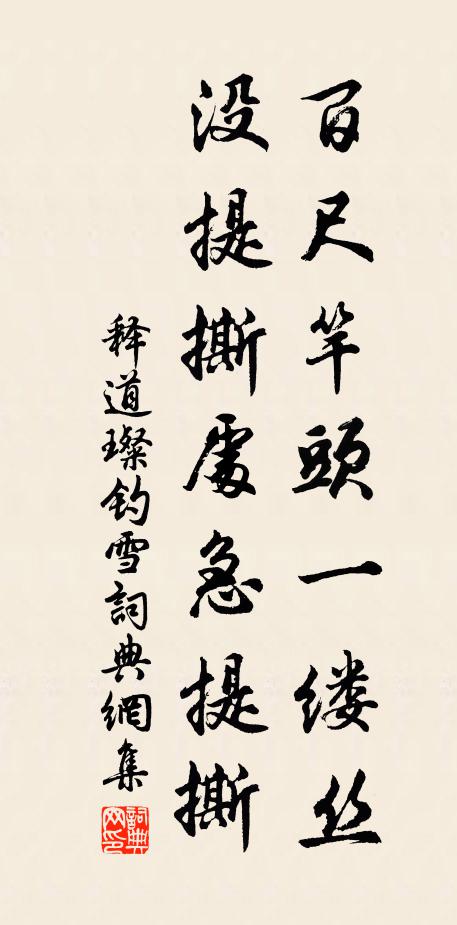 百尺竿頭一缕丝
没提撕處急提撕
释道璨钓雪詞典網集
詞典網印